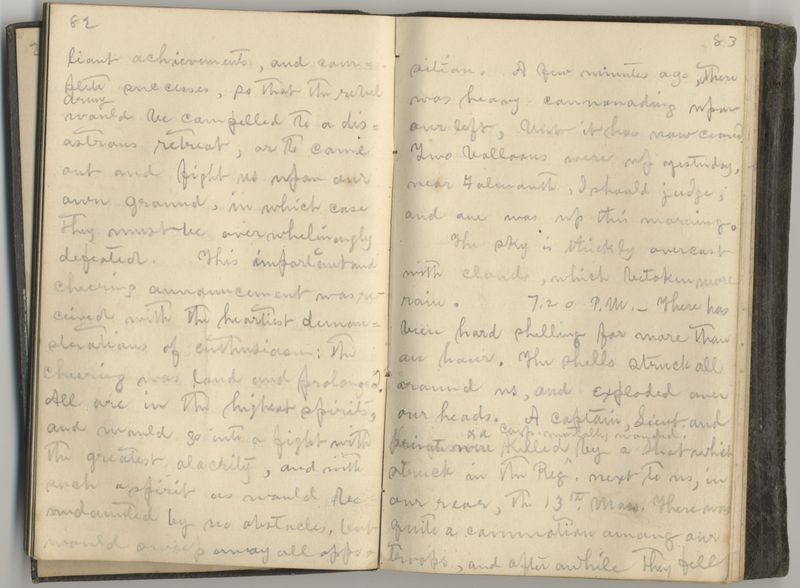 82
liant achievements, and com=
plete successes, so that the rebel
army
would be compelled to a dis=
astrous retreat, or to come
out and fight us upon our
own ground, in which case
they must be overwhelmingly
defeated. This important and
cheering announcement was re=
ceived with the heartiest demon=
strations of enthusiasm: the
cheering was loud and prolonged.
All are in the highest spirits,
and would go into a fight with
the greatest alacrity, and with
such a spirit as would be
undaunted by no obstacles, but
would sweep away all oppo=
83
sition. A few minutes ago, there
was heavy cannonading upon
our left, but it has now ceased.
Two balloons were up yesterday,
near Falmouth, I should judge;
and one was up this morning.
The sky is thickly overcast
with clouds, which betoken more
rain. 7.20 P.M. — There has
been hard shelling for more than
an hour. The shells struck all
around us, and exploded over
our heads. A captain, Lieut. and
& a corp. mortally wounded
private were killed by a shot which
struck in the Reg. next to us, in
our rear, the 13th Mass. There was
quite a commotion among our
troops, and after awhile they fell